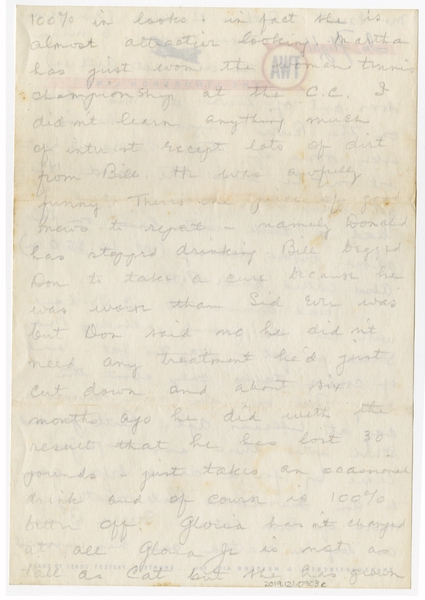 100% in looks & in fact she is
almost attractive looking. Martha
has just won the woman tennis
championship at the C.C. I
didn't learn anything much
of intrest except lots of dirt
from Bill. He was awfully
funny. There one piece of good
news to repeat - namely Donald
has stopped drinking. Bill begged
Don to take a cure because he
was worse than Sid ever was
but Don said no he didn't
need any treatment he'd just
cut down and about six
months ago he did with the
result that he has lost 30
pounds - just takes an occasional
drink and of course is 100%
better off. Gloria hasn't changed
at all Gloria Jr is not as
tall as Cat but she has
2019.121.0303c